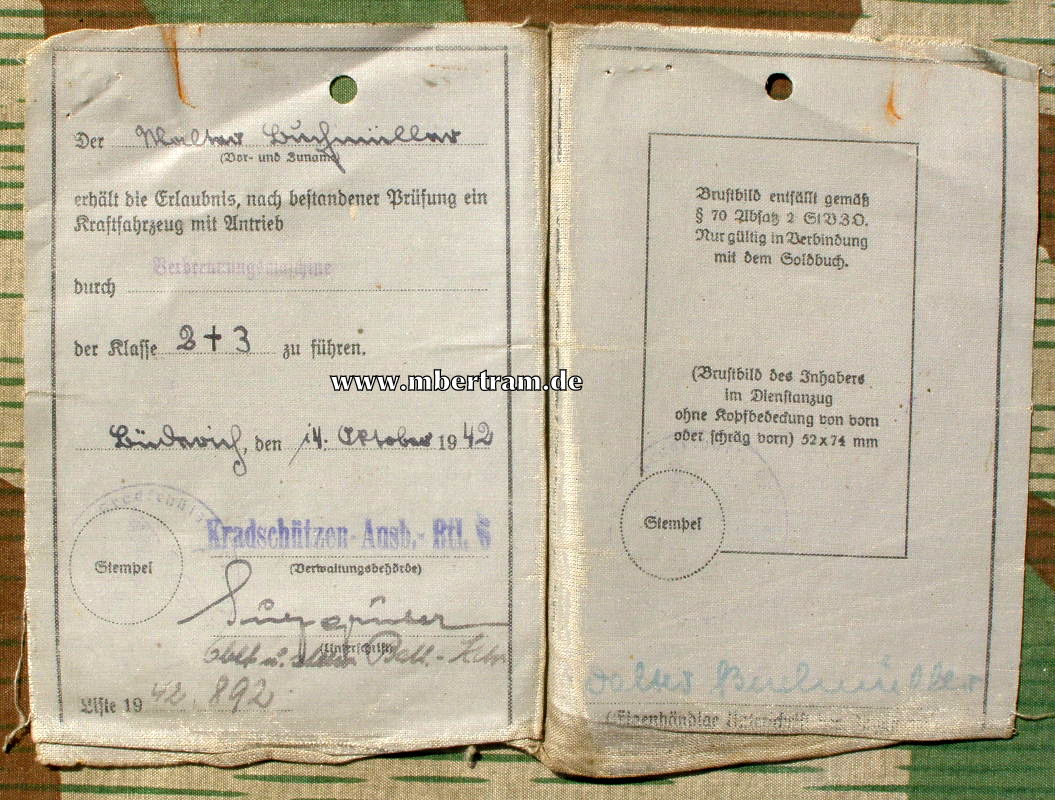 Der Walter Buchmüller
(Vor- und Zuname)
erhält die Erlaubnis, nach bestandener Prüfung ein
Kraftfahrzeug mit Antrieb
Verbrennungsmaschine
durch
der Klasse 2 + 3 zu führen.
Büderich, den 14. Oktober 1942
Kradschützen-Ausb.-Btl. 6
Stempel
(Verwaltungsbehörde)
(Unterschrift)
Oblt u. Batl.-
Liste 19 42. 892
Brustbild entfällt gemäß
§ 70 Absatz 2 StVZO.
Nur gültig in Verbindung
mit dem Soldbuch.
(Brustbild des Inhabers
im Dienstanzug
ohne Kopfbedeckung von vorn
oder schräg vorn) 52x74 mm
Stempel
Walter Buchmüller
(Eigenhändige Unterschrift des
www.mbertram.de